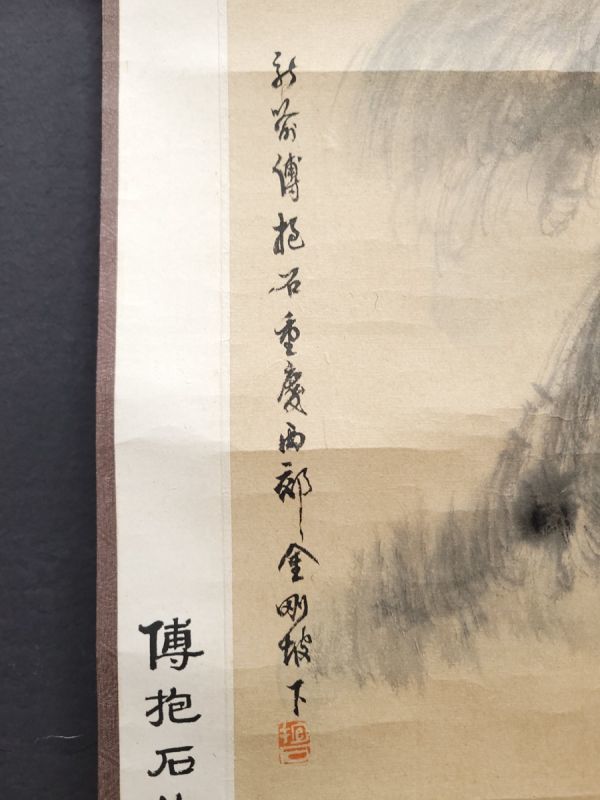 新喻傅抱石重慶西郊金剛坡下
傅抱石